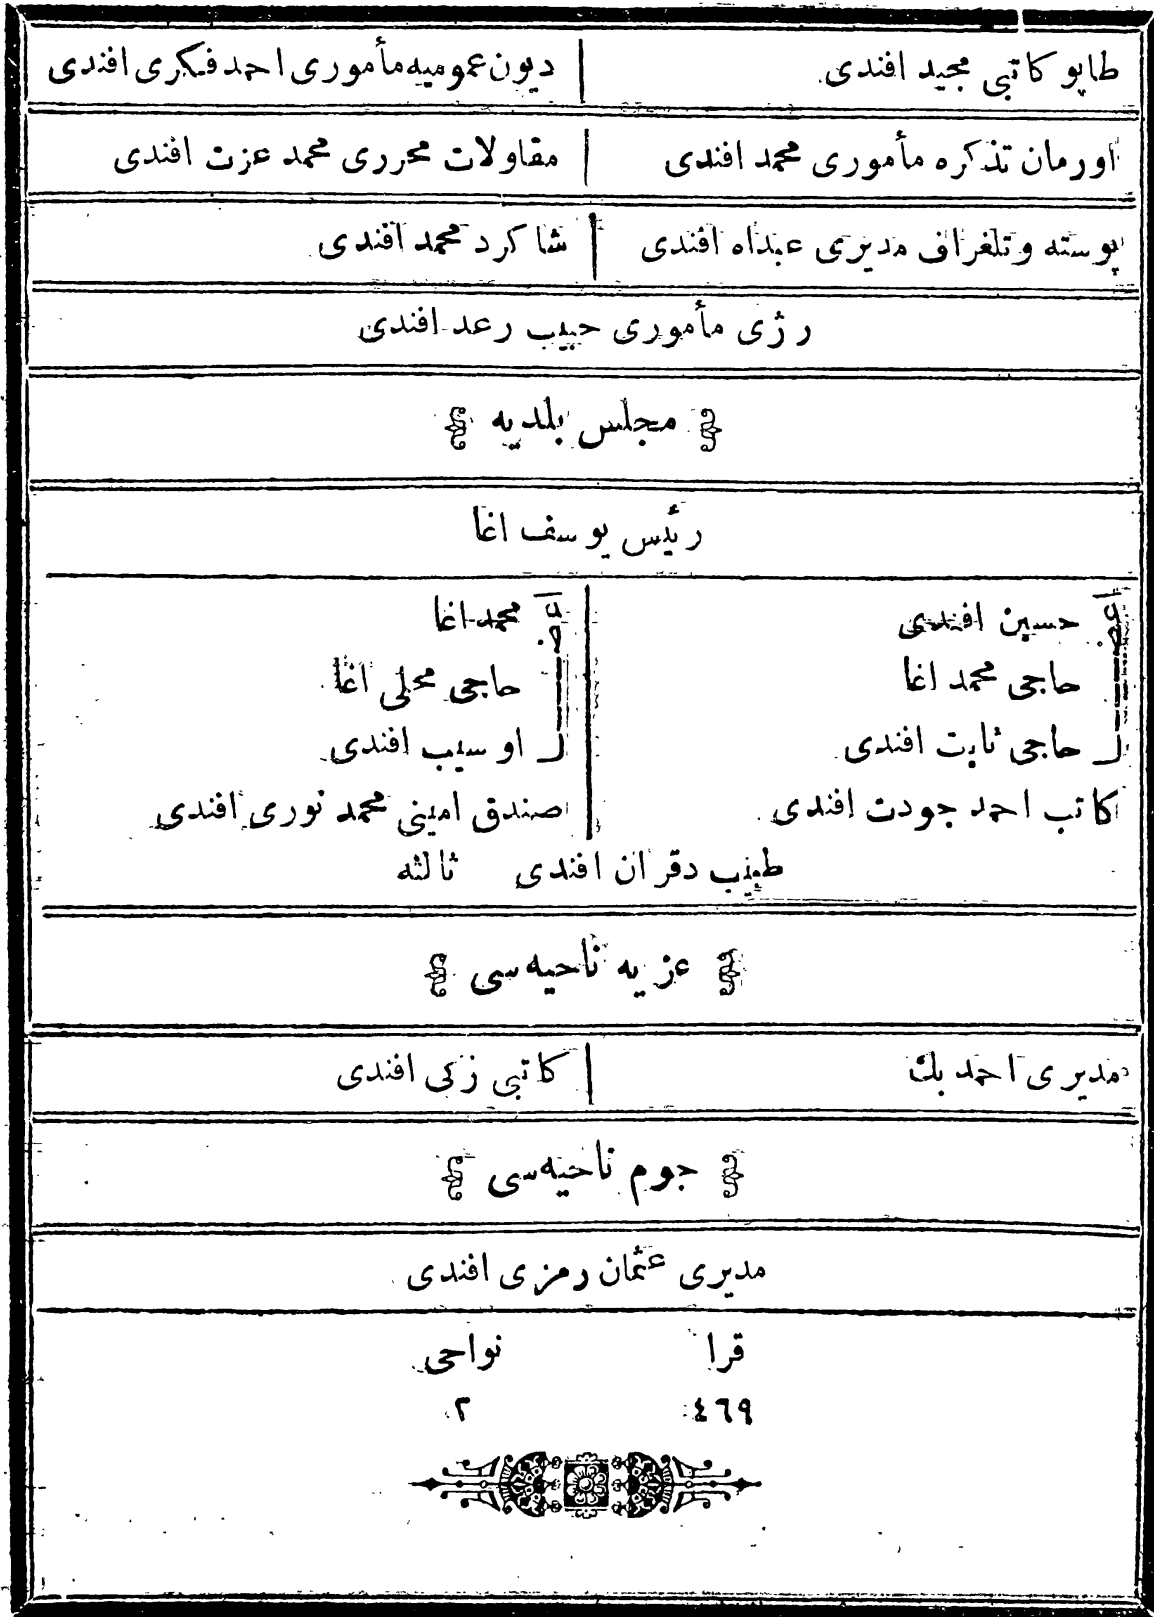 طاپو كاتبى مجيد افندى
ديون عموميه مأمورى احمد فكرى افندى
اورمان تذكره مأمورى محمد افندى
مقاولات محررى محمد عزت افندى
پوسته وتلغراف مديرى عبداه افندى
شاكرد محمد افندى
رژى مأمورى حبيب رعد افندى
مجلس بلديه
رئيس يوسف اغا
اعضا
حسين افندى
حاجى محمد اغا
حاجى ثابت افندى
كاتب احمد جودت افندى
اعضا
محمد اغا
حاجى محلى اغا
اوسيب افندى
صندق امينى محمد نورى افندى
طبيب دقران افندى ثالثه
عزيه ناحيه‌سى
مديرى احمد بك
كاتبى زكى افندى
جوم ناحيه‌سى
مديرى عثمان رمزى افندى
قرا نواحى
٤٦٩ ٢